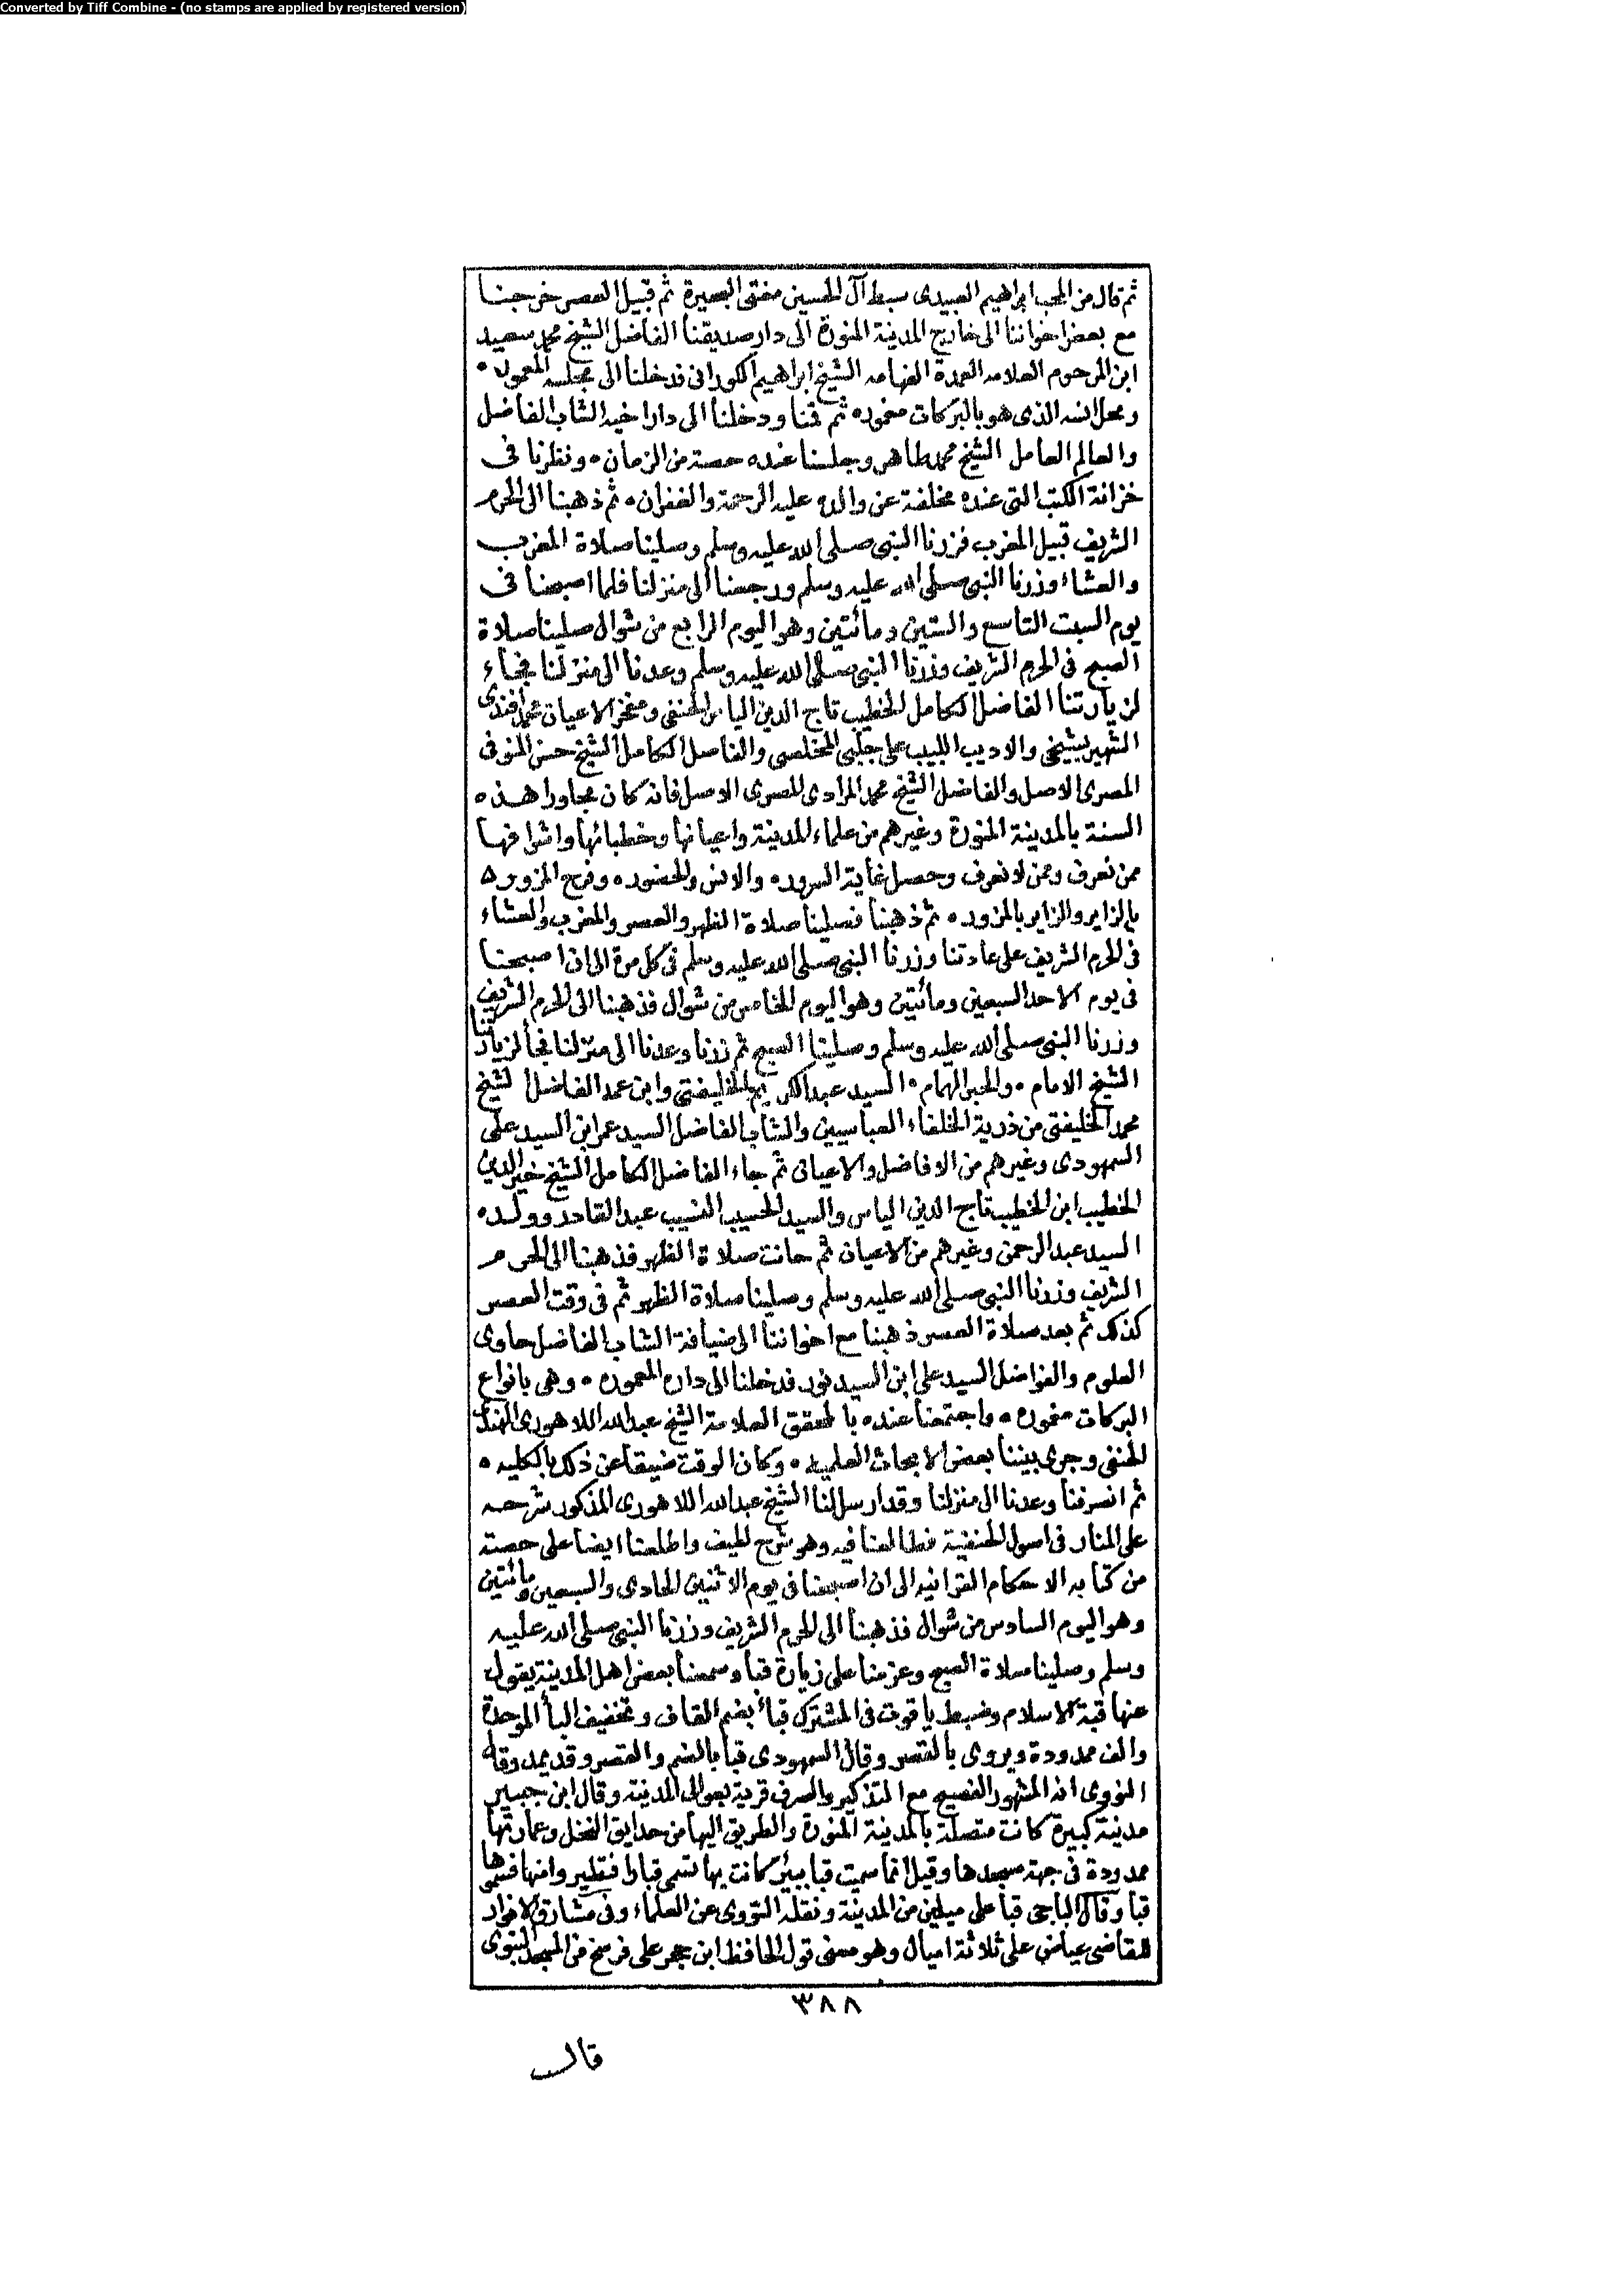 Converted by Tiff Combine - (no stamps are applied by registered version)
ثم قال من المحب ابراهيم العبيدى سبط آل الحسين مفتى البصيرة ثم قبيل العصر خرجنا
مع بعض اخواننا الى خارج المدينة المنورة الى دار صديقنا الفاضل الشيخ محمد سعيد
ابن المرحوم العلامه العمدة الفهامه الشيخ ابراهيم الكورانى فدخلنا الى مجلسه المعمور
ومحل انسه الذى هو بالبركات مغموره ثم قمنا ودخلنا الى دار اخيه الشاب الفاضل
والعالم العامل الشيخ محمد طاهر وجلسنا عنده حصة من الزمان ونظرنا فى
خزانة الكتب التى عنده مخلفة عن والده عليه الرحمة والغفران ثم ذهبنا الى الحرم
الشريف قبيل المغرب فزرنا النبى صلى الله عليه وسلم وصلينا صلاة المغرب
والعشاء وزرنا النبى صلى الله عليه وسلم ورجعنا الى منزلنا فلما اصبحنا فى
يوم السبت التاسع والستين ومائتين وهو اليوم الرابع من شوال صلينا صلاة
الصبح فى الحرم الشريف وزرنا النبى صلى الله عليه وسلم وعدنا الى منزلنا فجاء
لزيارتنا الفاضل الكامل الخطيب تاج الدين الياس الحنفى ومفخر الاعيان محمد افندى
الشهير بشيخى والاديب اللبيب على جلبى المخلصى والفاضل الكامل الشيخ حسن المنوفى
المصرى الاصل والفاضل الشيخ محمد المرادى المصرى الاصل فانه كان مجاورا هذه
السنة بالمدينة المنورة وغيرهم من علماء المدينة واعيانها وخطبائها واشرافها
ممن نعرف وممن لا نعرف وحصل غاية السرور والانس والحضور وفرح المزور
بالزاير والزاير بالمزور ثم ذهبنا فصلينا صلاة الظهر والعصر والمغرب والعشاء
فى الحرم الشريف على عادتنا وزرنا النبى صلى الله عليه وسلم فى كل مرة الى ان اصبحنا
فى يوم الاحد السبعين ومائتين وهو اليوم الخامس من شوال فذهبنا الى الحرم الشريف
وزرنا النبى صلى الله عليه وسلم وصلينا الصبح ثم زرنا وعدنا الى منزلنا فجأ لزيارتنا
الشيخ الامام والحبر الهمام السيد عبد الكريم الخليفتى وابن عمه الفاضل الشيخ
محمد الخليفتى من ذرية الخلفاء العباسيين والشاب الفاضل السيد عمر ابن السيد على
السمهودى وغيرهم من الافاضل والاعيان ثم جاء الفاضل الكامل الشيخ خير الدين
الخطيب ابن الخطيب تاج الدين الياس والسيد الحسيب النسيب عبد القادر وولده
السيد عبد الرحمن وغيرهم من الاعيان ثم حانت صلاة الظهر فذهبنا الى الحرم
الشريف وزرنا النبى صلى الله عليه وسلم وصلينا صلاة الظهر ثم فى وقت العصر
كذلك ثم بعد صلاة العصر ذهبنا مع اخواننا الى ضيافة الشاب الفاضل حاوى
العلوم والفواضل السيد على ابن السيد نور فدخلنا الى داره المعموره وهى بانواع
البركات مغموره واجتمعنا عنده بالمحقق العلامة الشيخ عبد الله اللاهورى الهندى
الحنفى وجرى بيننا بعض الابحاث العلميه وكان الوقت ضيقا عن ذلك بالكليه
ثم انصرفنا وعدنا الى منزلنا وقد ارسل لنا الشيخ عبد الله اللاهورى المذكور شرحه
على المنار فى اصول الحنفية فطالعنا فيه وهو شرح لطيف واطلعنا ايضا على حصة
من كتابه الاحكام القرانيه الى ان اصبحنا فى يوم الاثنين الحادى والسبعين ومائتين
وهو اليوم السادس من شوال فذهبنا الى الحرم الشريف وزرنا النبى صلى الله عليه
وسلم وصلينا صلاة الصبح وعزمنا على زيارة قبا وسمعنا بعض اهل المدينة يقول
عنها قبة الاسلام وضبط ياقوت فى المشترك قبأ بضم القاف وتخفيف البأ الموحدة
والف ممدودة ويروى بالقصر وقال السمهودى قبا بالضم والقصر وقد يمد وقال
النووى انه المشهور الفصيح مع التذكير والصرف قرية بعوالى المدينة وقال ابن جبير
مدينة كبيرة كانت متصلة بالمدينة المنورة والطريق اليها من حدايق النخل وعمارتها
ممدودة فى جهة مسجدها وقيل انما سميت قبا ببئر كانت بها تسمى قبار فتطيروا منها فسموها
قبا وقال الباجى قبا على ميلين من المدينة ونقله النووى عن العلماء وفى مشارق الانوار
للقاضى عياض على ثلاثة اميال وهو معنى قول الحافظ ابن حجر على فرسخ من المسجد النبوى
٣٨٨
قال